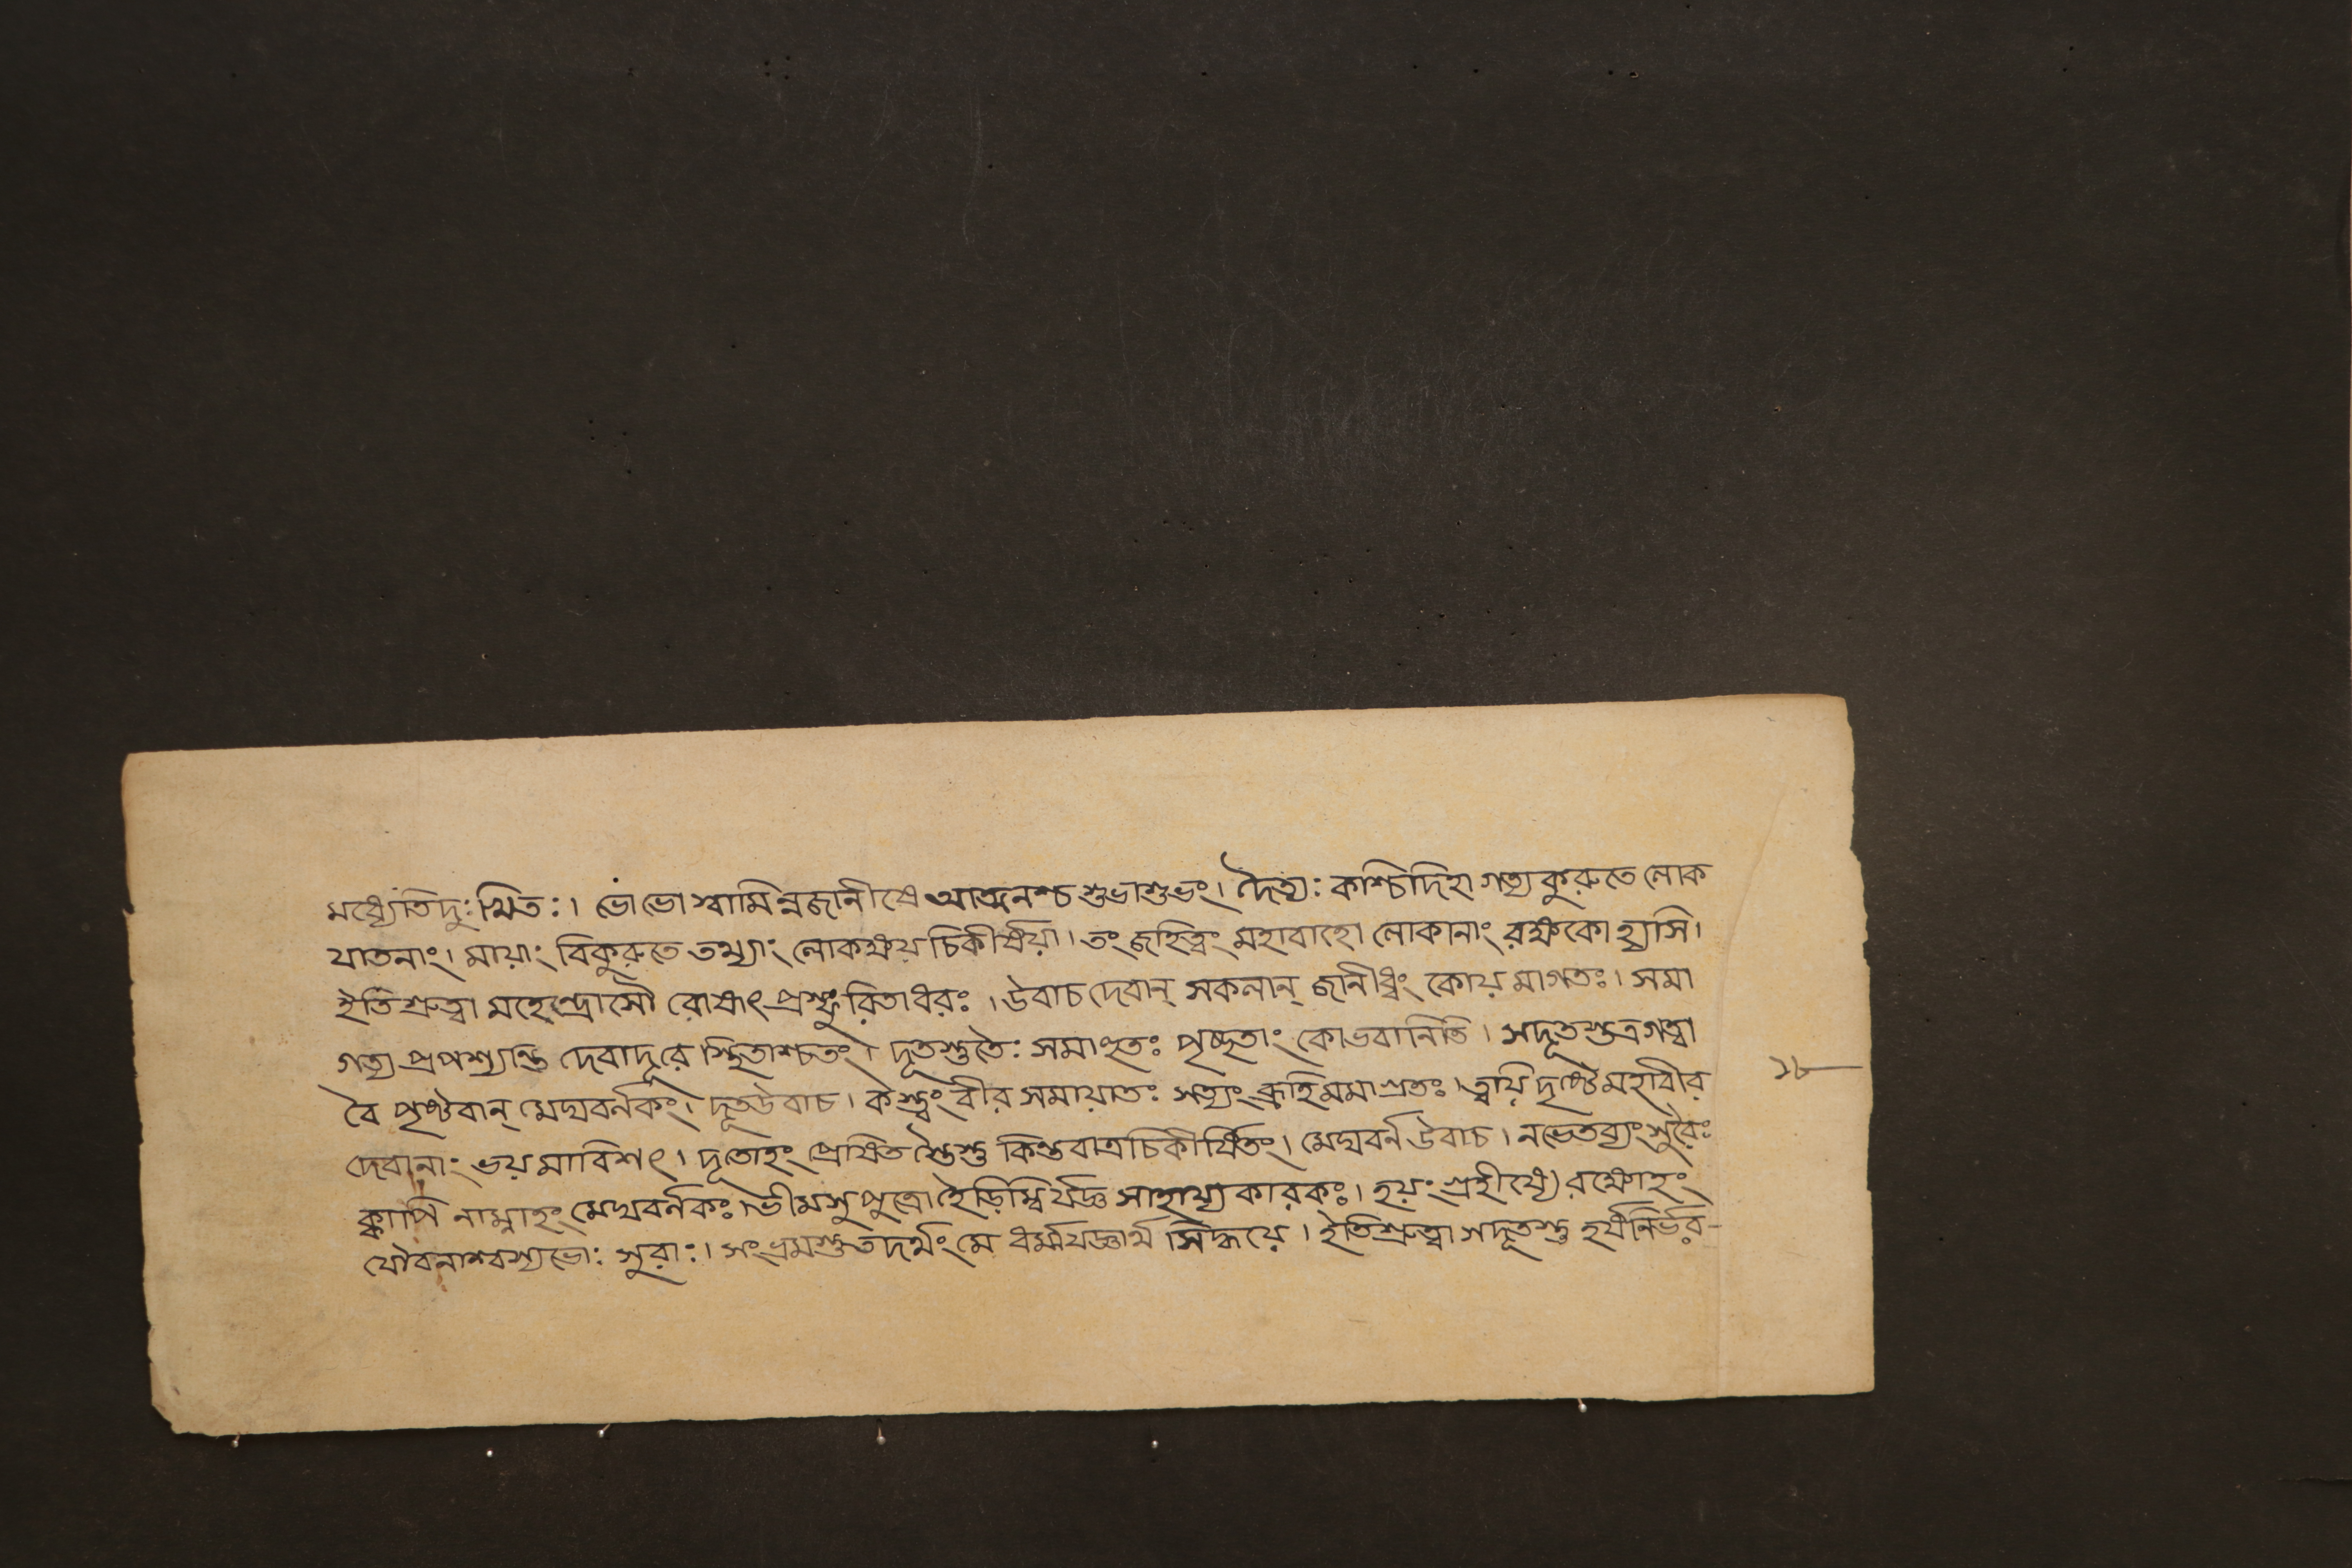 মধ্যেতিদুঃখিতঃ। ভোভো স্বামিন্নজানীষে আত্মনশ্চ শুভাশুভং। দৈত্যঃ কশ্চিদিহা গত্য কুরুতে লোক
যাতনাং। মায়াং বিকুরুতে তথ্যাং লোকক্ষয় চিকীর্ষয়া। তং জহিত্বং মহাবাহো লোকানাং রক্ষকো হ্যসি।
ইতিশ্রুত্বা মহেন্দ্রোসৌ রোষাৎ প্রস্ফুরিতাধরঃ। উবাচ দেবান্ সকলান্ জানীধ্বং কোয়মাগতঃ। সমা
গত্য প্রপশ্যন্তি দেবাদূরে স্থিতাশ্চতং। দূতস্তুতৈঃ সমাহূতঃ পৃচ্ছতাং কোভবানিতি। সদূতস্তত্রগত্বা
বৈ পৃষ্টবান্ মেঘবর্নকং। দূতউবাচ। কস্ত্বং বীর সমায়াতঃ সত্যং ব্রূহিমমাগ্রতঃ। ত্বয়ি দৃষ্টে মহাবীর
দেবানাং ভয়মাবিশৎ। দূতোহং প্রেষিত স্তৈস্তু কিন্তবাত্রচিকীর্ষিতং। মেঘবর্ন উবাচ। নভেতব্যংসুরৈঃ
ক্কাপি নাম্নাহং মেঘবর্নকঃ। ভীমসু পুত্রো হৈড়িম্বির্যজ্ঞ সাহায্যকারকঃ। হয়ং গ্রহীষ্যে রক্ষোহং
যৌবনাশ্বস্যভোঃ সুরাঃ। সংভ্রমস্তুতদর্থং মে ধর্ম্মযজ্ঞার্থ সিদ্ধয়ে। ইতিশ্রুত্বা সদূতস্তু হর্ষনির্ভর-
১৮